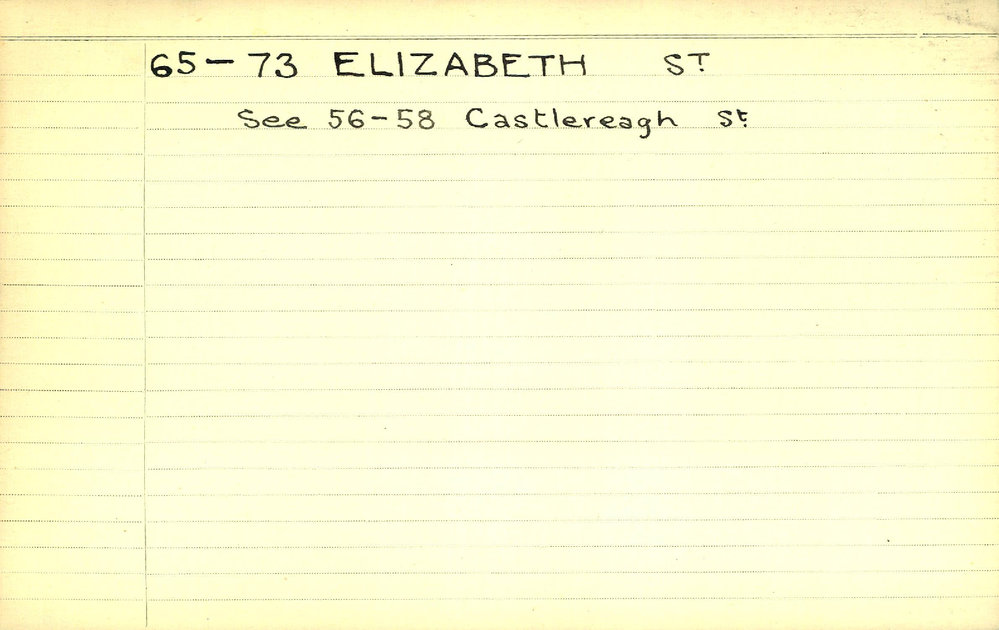 65-73 ELIZABETH ST
See 56-58 Castlereagh St